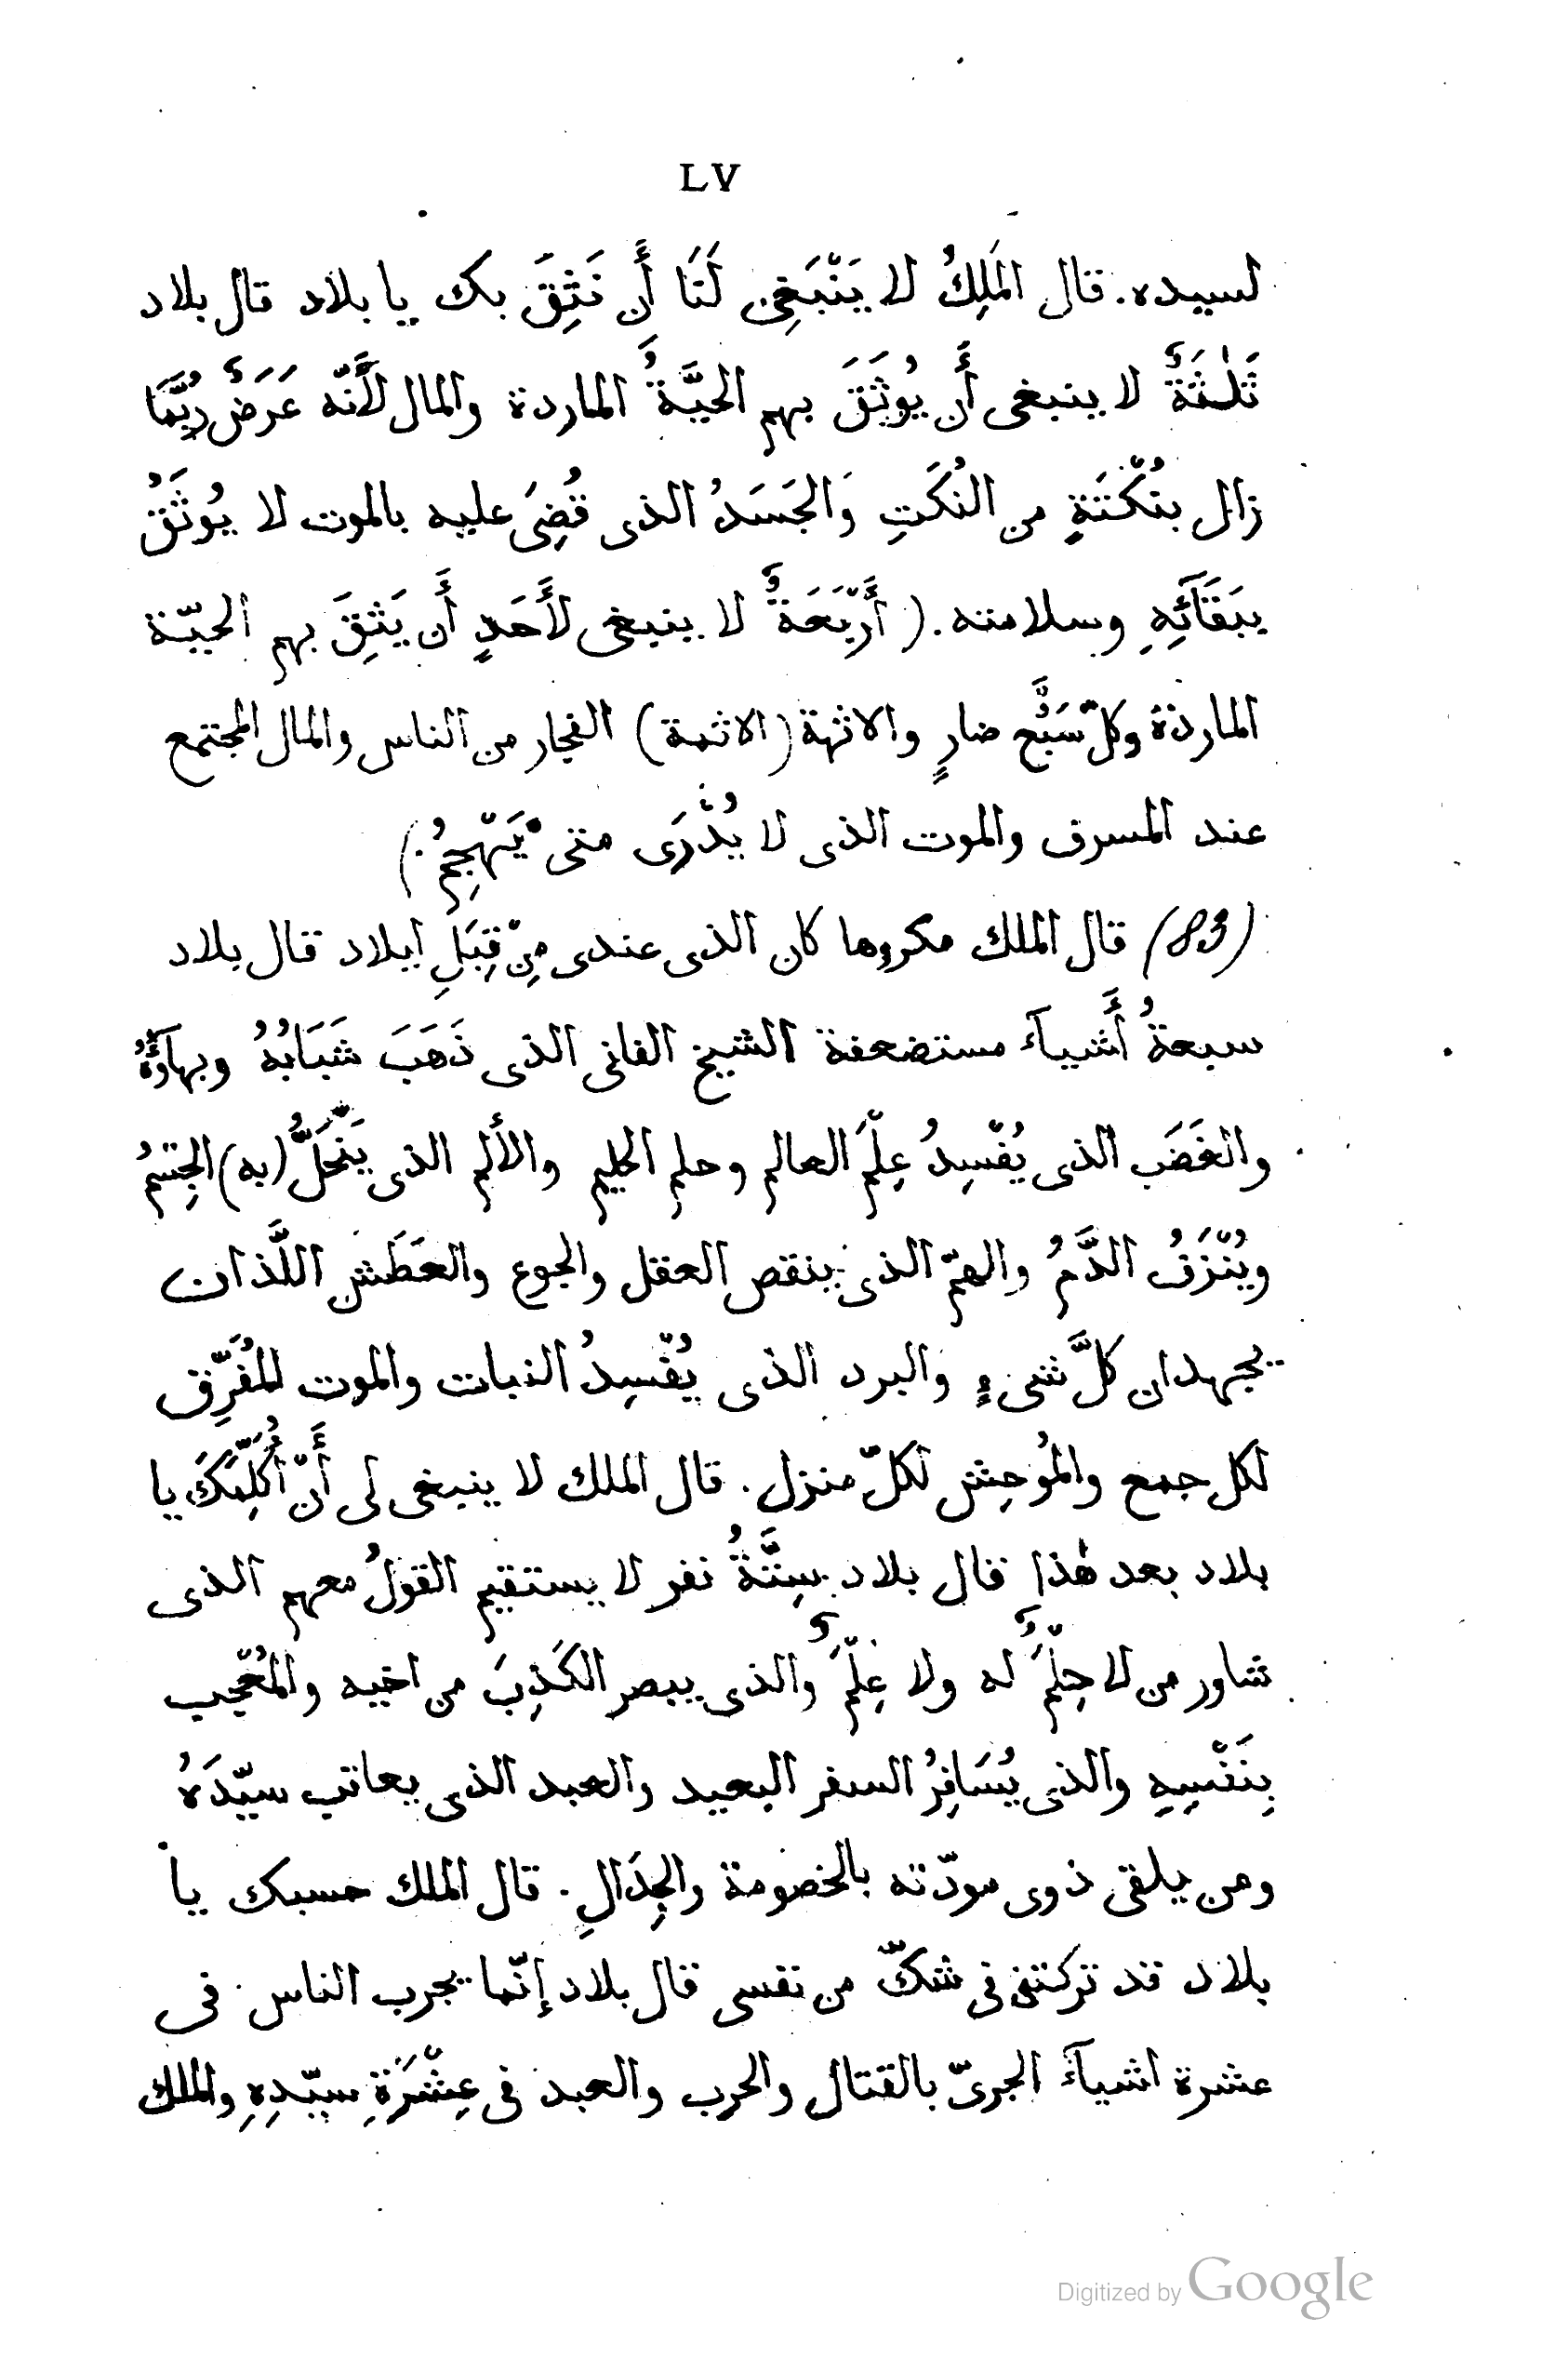 LV
لسيده. قال المَلِكُ لا يَنْبَغِى لَنَا أَن نَثِقَ بك يا بلاد قال بلاد
ثَلٰثَةٌ لا ينبغى أَن يُوثَقَ بهم الحيَّةُ الماردة والمال لأَنّه عَرَضٌ رُبَّمَا
زال بنُكْتَةٍ من النُكَتِ وَالجَسَدُ الذى قُضِىَ عليه بالموت لا يُوثَقُ
بِبَقَآئِهِ وسلامته. (أَرْبَعَةٌ لا ينبغى لأَحَدٍ أَن يَثِقَ بهم الحيّة
الماردة وكلّ سَبُعٍ ضارٍ والاثهة (الاثمة) الفجار من الناس والمال المجتمع
عند المسرف والموت الذى لا يُدْرَى متى يَهْجِمُ.)
(83) قال الملك مكروها كان الذى عندى مِنْ قِبَلِ ايلاد قال بلاد
سبعةُ أَشيآءَ مستضعفة الشيخ الفانى الذى ذَهَبَ شَبَابُهُ وبهآؤُهُ
والغَضَب الذى يُفْسِدُ عِلْمَ العالم وحلم الحليم والأَلم الذى يَنْحَلُّ (به) الجِسْمُ
ويُنْزَفُ الدَّمُ والهمّ الذى ينقص العقل والجوع والعَطَش اللَّذان
يجهدان كلَّ شىءٍ والبرد الذى يُفْسِدُ النبات والموت المُفَرِّق
لكل جمع والمُوحِش لكلّ منزل. قال الملك لا ينبغى لى أَنْ أُكَلِّمَكَ يا
بلاد بعد هٰذا قال بلاد سِتَّةُ نفر لا يستقيم القولُ معهم الذى
شاور من لا حِلْمٌ له ولا عِلْمٌ والذى يبصر الكَذِبَ من اخيه والمُعْجِب
بِنَفْسِهِ والذى يُسَافِرُ السفر البعيد والعبد الذى يعاتب سيّدَهُ
ومن يلقى ذوى مودّته بالخصومة والجِدَالِ. قال الملك حسبك يا
بلاد قد تركتنى فى شكّ من نفسى قال بلاد إنّما يجرب الناس فى
عشرة اشيآءَ الجرىّ بالقتال والحرب والعبد فى عِشْرَةِ سيّدِهِ والملك
Digitized by Google